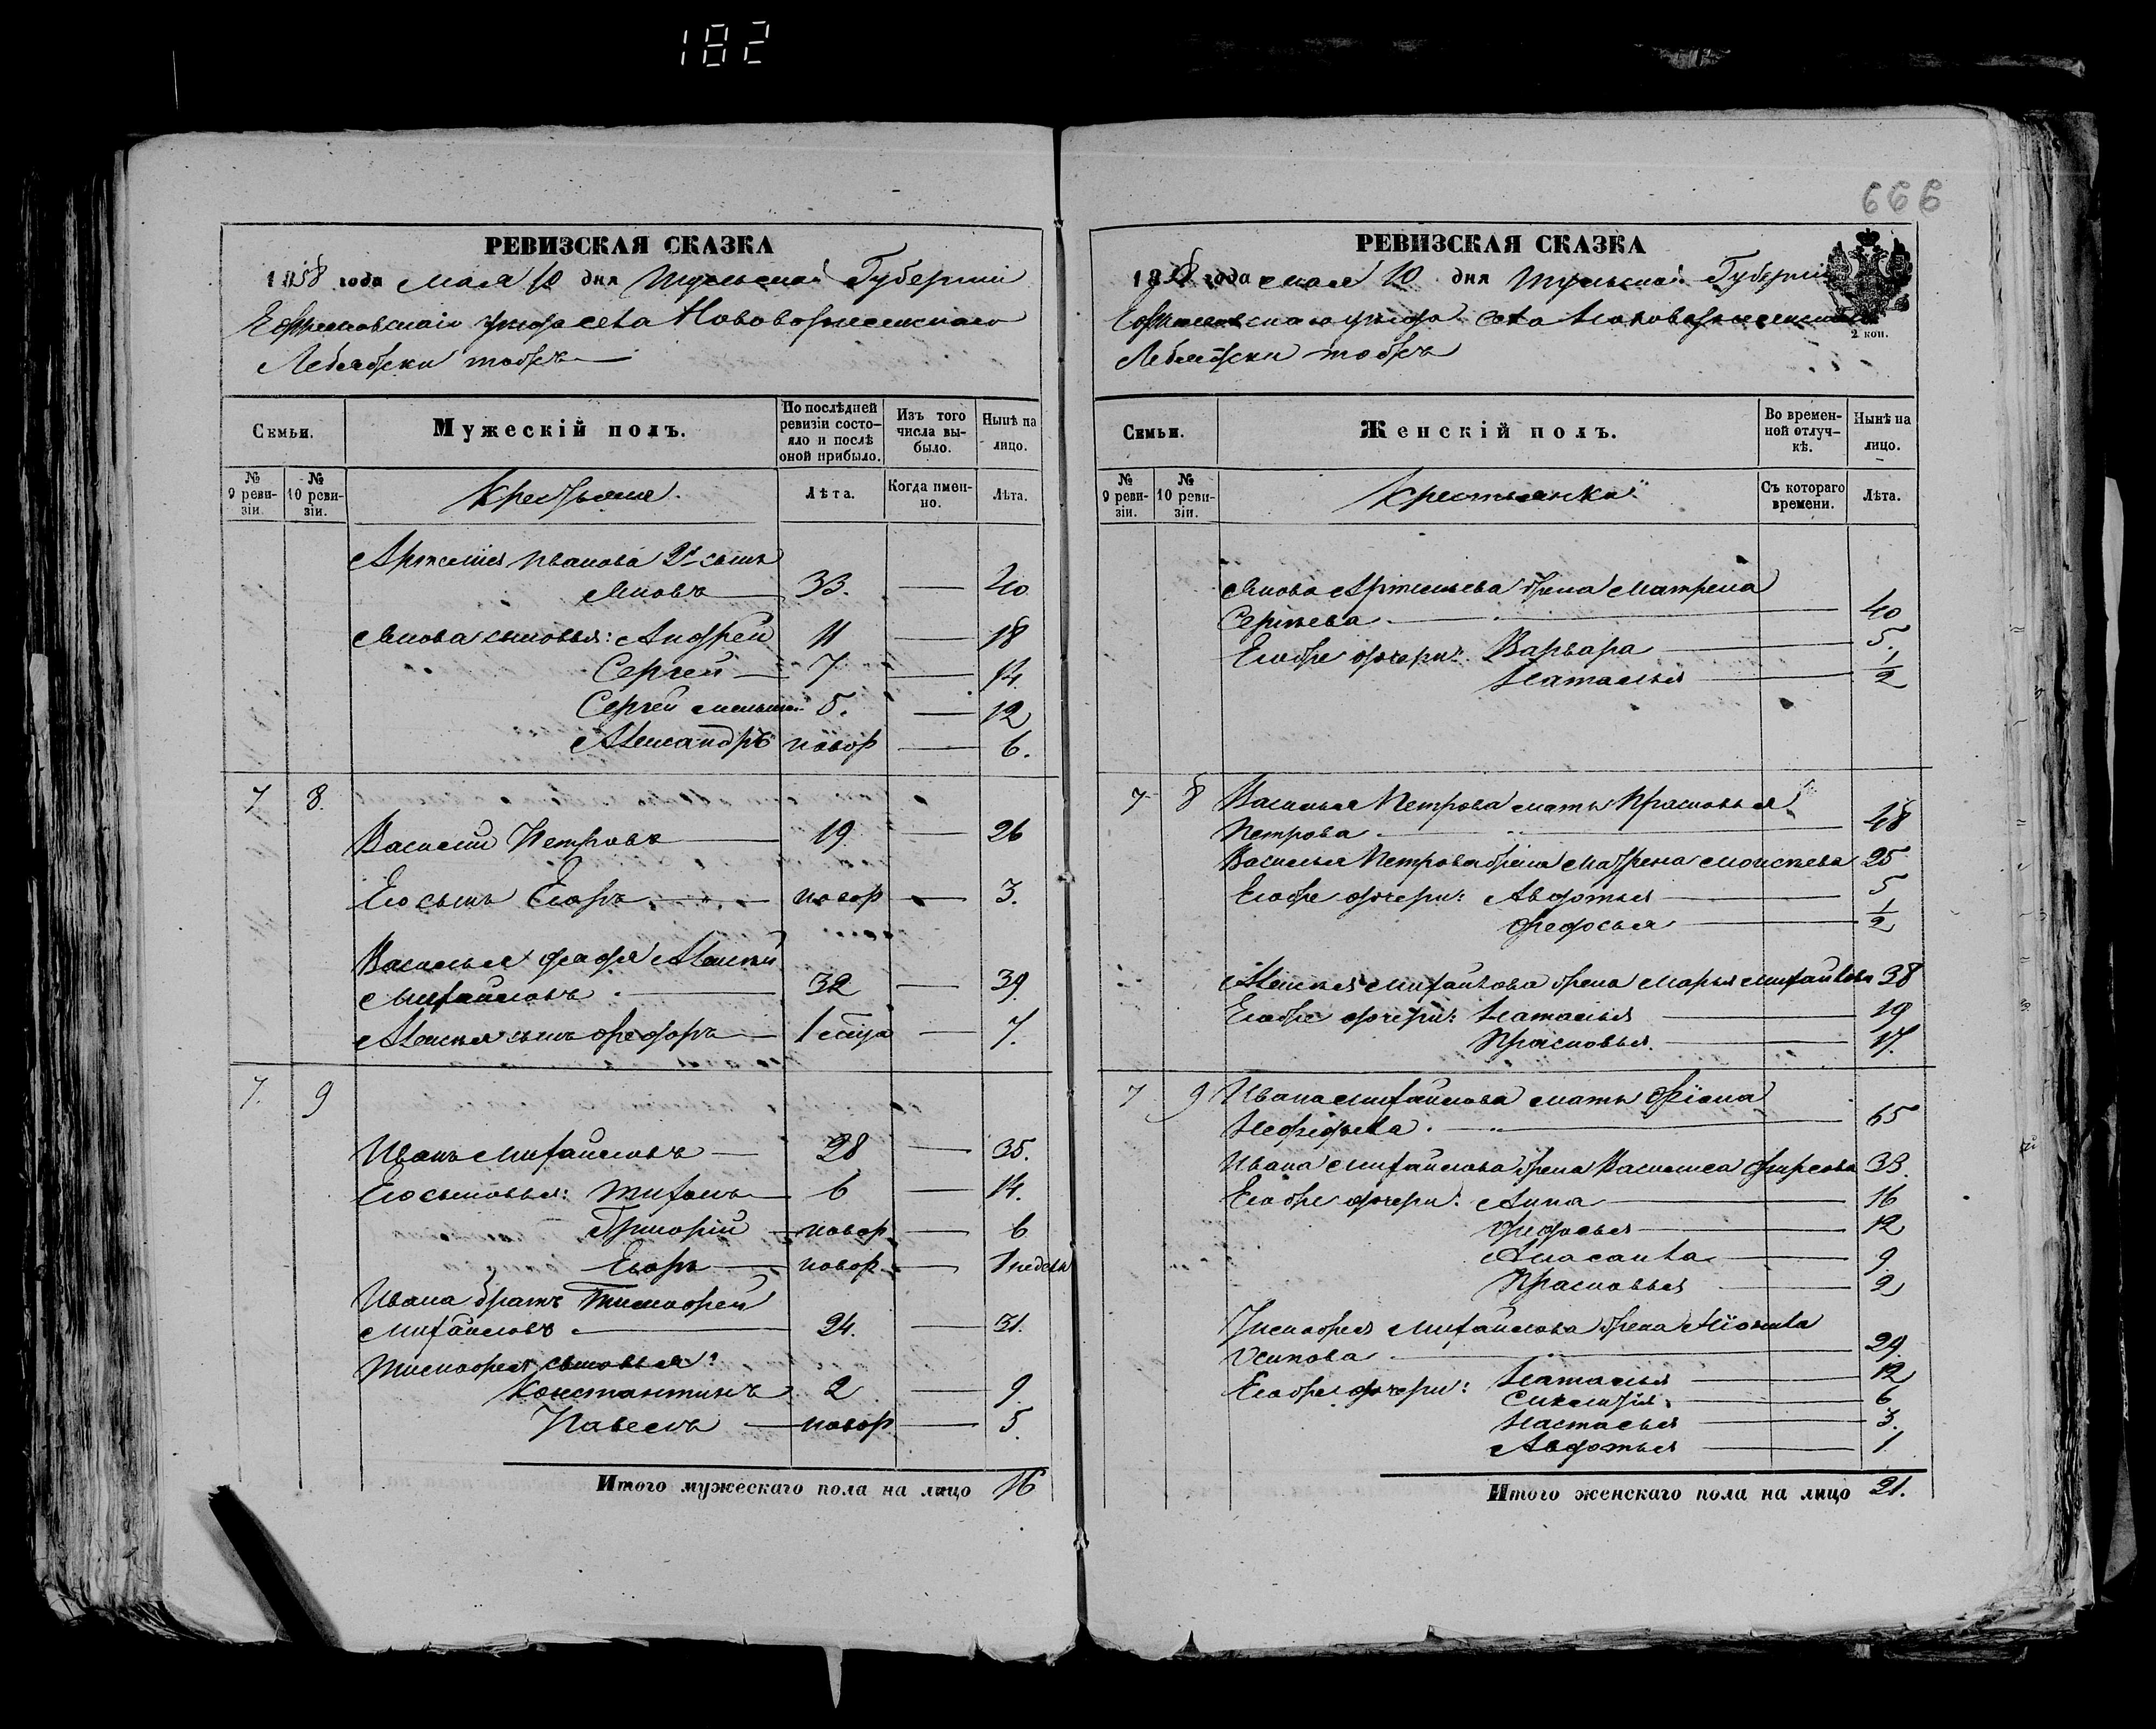 182
666
РЕВИЗСКАЯ СКАЗКА
1858 года мая 10 дня Тульской Губерніи
Ефремовскаго уѣзда села Нововоскресенскаго
Лебядки тобжъ
Семьи.
Мужескій полъ.
По послѣдней ревизіи состояло и послѣ оной прибыло.
Изъ того числа выбыло.
Нынѣ на лицо.
№ 9 ревизіи.
№ 10 ревизіи.
Крестьяне.
Лѣта.
Когда именно.
Лѣта.
Артемія Иванова 2й сынъ
Яковъ 33. 40
Якова сыновья: Андрей 11 18
Сергей 7 14.
Сергей меньшой 5. 12
Александръ новор 6.
7 8.
Василий Петровъ 19. 26
Его сынъ Егоръ новор 3.
Василья дядя Алексѣй
Михайловъ 32 39.
Алексѣя сынъ Федоръ 1 7.
7. 9
Иванъ Михайловъ 28 35.
Его сыновья: Тихонъ 6 14.
Григорій новор 6
Егоръ новор 1 недели
Ивана братъ Тимофей
Михайловъ 24. 31.
Тимофея сыновья:
Константинъ 2 9.
Павелъ новор 5.
Итого мужескаго пола на лицо 16
РЕВИЗСКАЯ СКАЗКА
1858 года мая 10 дня Тульской Губерніи
Ефремовскаго уѣзда села Нововоскресенскаго
Лебядки тобжъ
2 коп.
Семьи.
Женскій полъ.
Во временной отлучкѣ.
Нынѣ на лицо.
№ 9 ревизіи.
№ 10 ревизіи.
Крестьянки
Съ котораго времени.
Лѣта.
Якова Артемьева жена Матрена
Сергѣева 40
Его же дочери: Варвара 5.
Наталья 1/2
7 8 Василья Петрова мать Прасковья
Петрова 48
Василья Петрова жена Матрена Моисѣева 25
Его же дочери: Авдотья 5
Федосья 1/2
Алексѣя Михайлова жена Марья Михайлова 38
Его же дочери: Наталья 19
Прасковья 17.
7 9 Ивана Михайлова мать
65
Ивана Михайлова жена Василиса Фирсова 33.
Его же дочери: Анна 16
Федосья 12
9.
Прасковья 2
Тимофея Михайлова жена
Осипова 29.
Его же дочери: Наталья 12
6
Настасья 3.
Авдотья 1.
Итого женскаго пола на лицо 21.